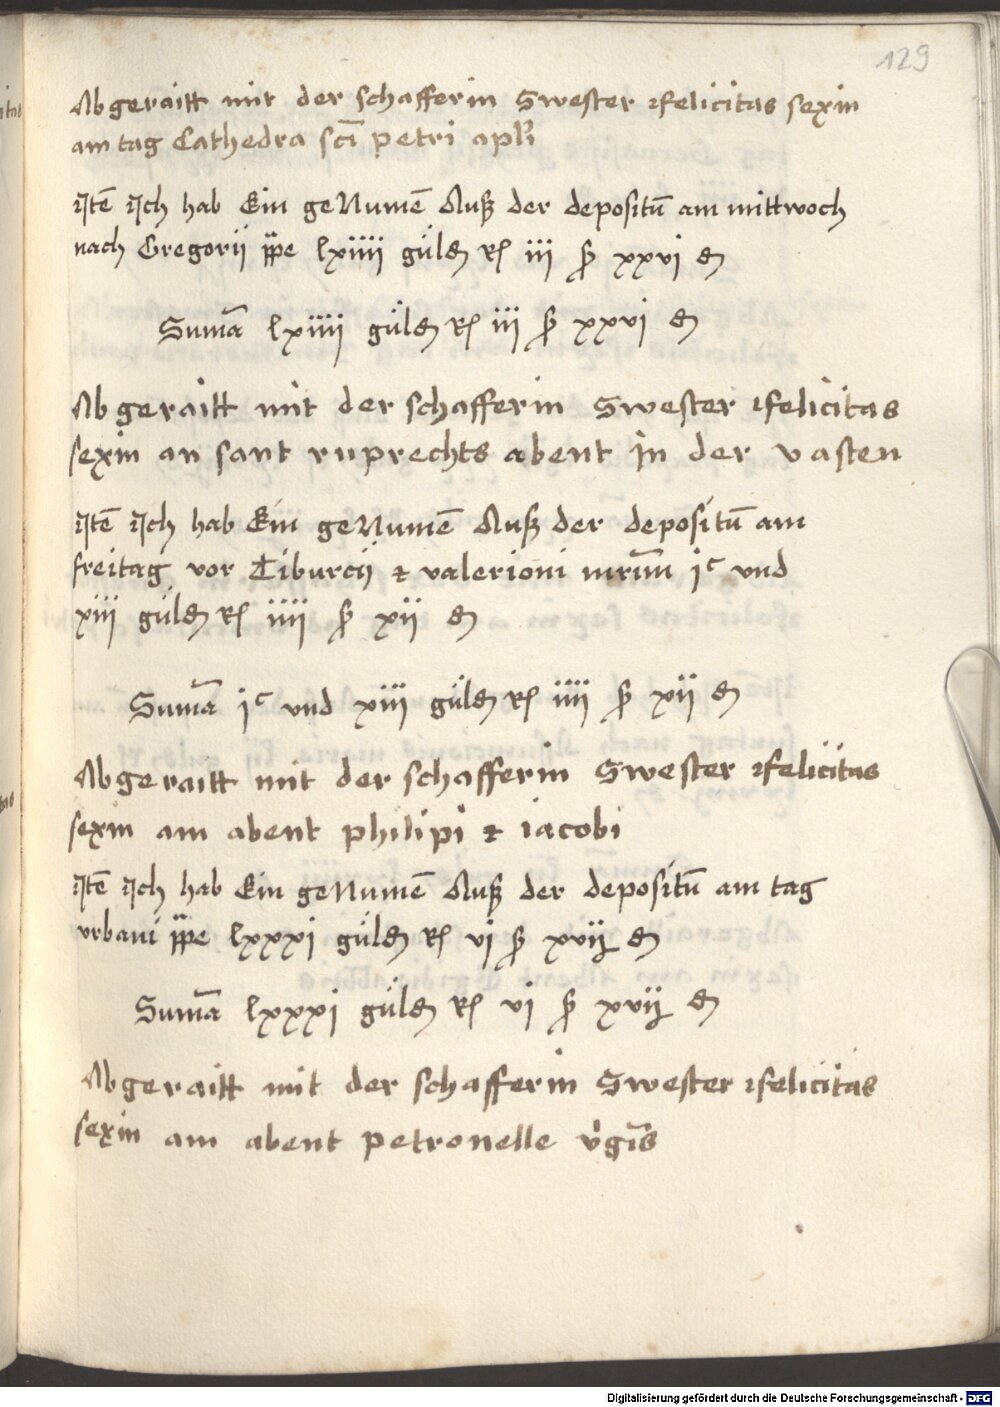 129
Abgeraitt mit der schafferin Swester ffelicitas sexin
am tag Cathedra scī petri apli
Itē Ich hab Ein geNumē Auß der depositū am mittwoch
nach Gregorii ppe lxiiii güld rh iii ß xxvi d
Sumā lxiiii güld rh iii ß xxvi d
Abgeraitt mit der schafferin Swester ffelicitas
sexin an sant ruprechts abent in der vasten
Itē Ich hab Ein geNumē Auß der depositū am
freitag vor Tiburcij et valerioni mrīm jᶜ vnd
xiii güld rh iiii ß xii d
Sumā jᶜ vnd xiii güld rh iiii ß xii d
Abgeraitt mit der schafferin Swester ffelicitas
sexin am abent philipi et iacobi
Itē Ich hab Ein geNumē Auß der depositū am tag
vrbani ppe lxxxj güld rh vj ß xvij d
Sumā lxxxj güld rh vj ß xvij d
Abgeraitt mit der schafferin Swester ffelicitas
sexin am abent petronelle v̄gīs
Digitalisierung gefördert durch die Deutsche Forschungsgemeinschaft - DFG